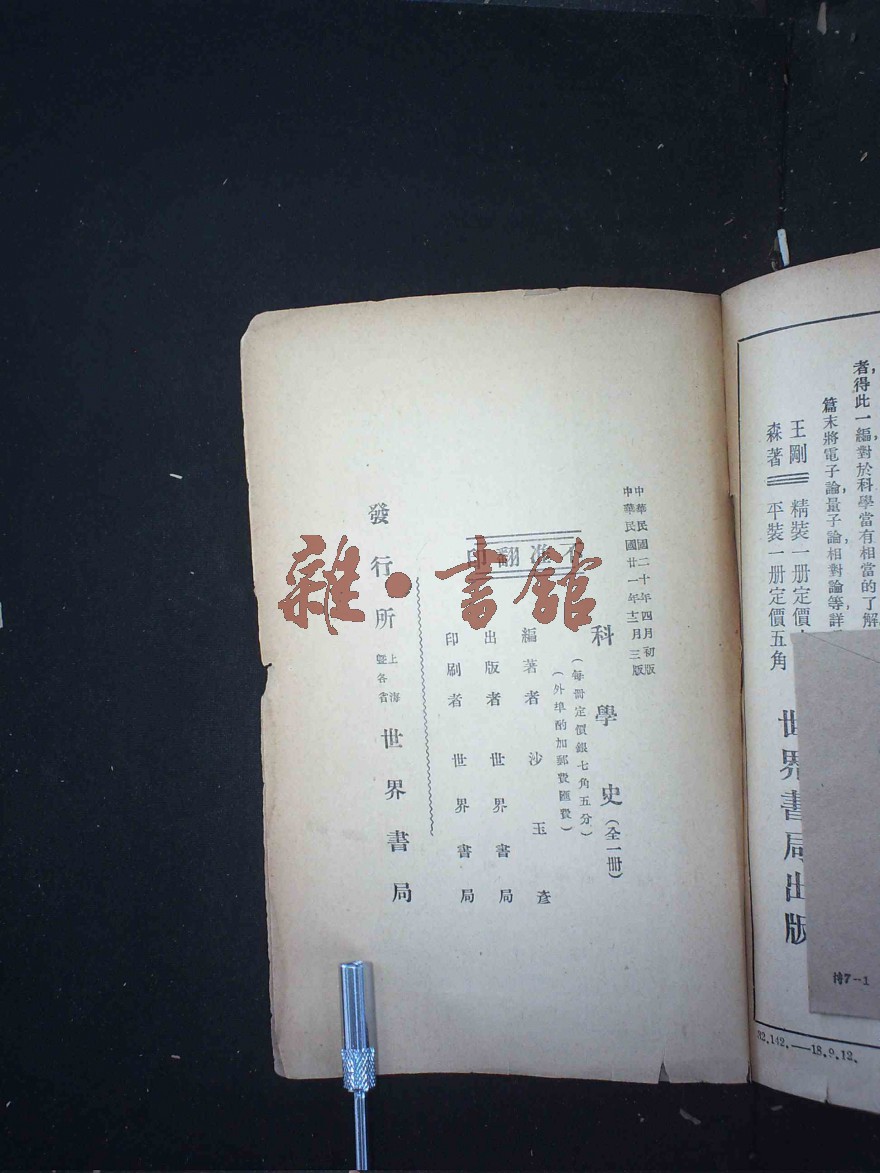 者，得此一編，對於科學當有相當的了解
篇末將電子論，量子論，相對論等，詳
王剛
森著
精裝一册定價
平裝一册定價五角
世界書局出版
持7-1
32.142.—18.9.12.
中華民國二十年四月初版
中華民國廿一年十二月三版
科學史（全一冊）
（每冊定價銀七角五分）
（外埠酌加郵費匯費）
不准翻印
編著者 沙玉彥
出版者 世界書局
印刷者 世界書局
發行所 上海暨各省 世界書局
雜·書館